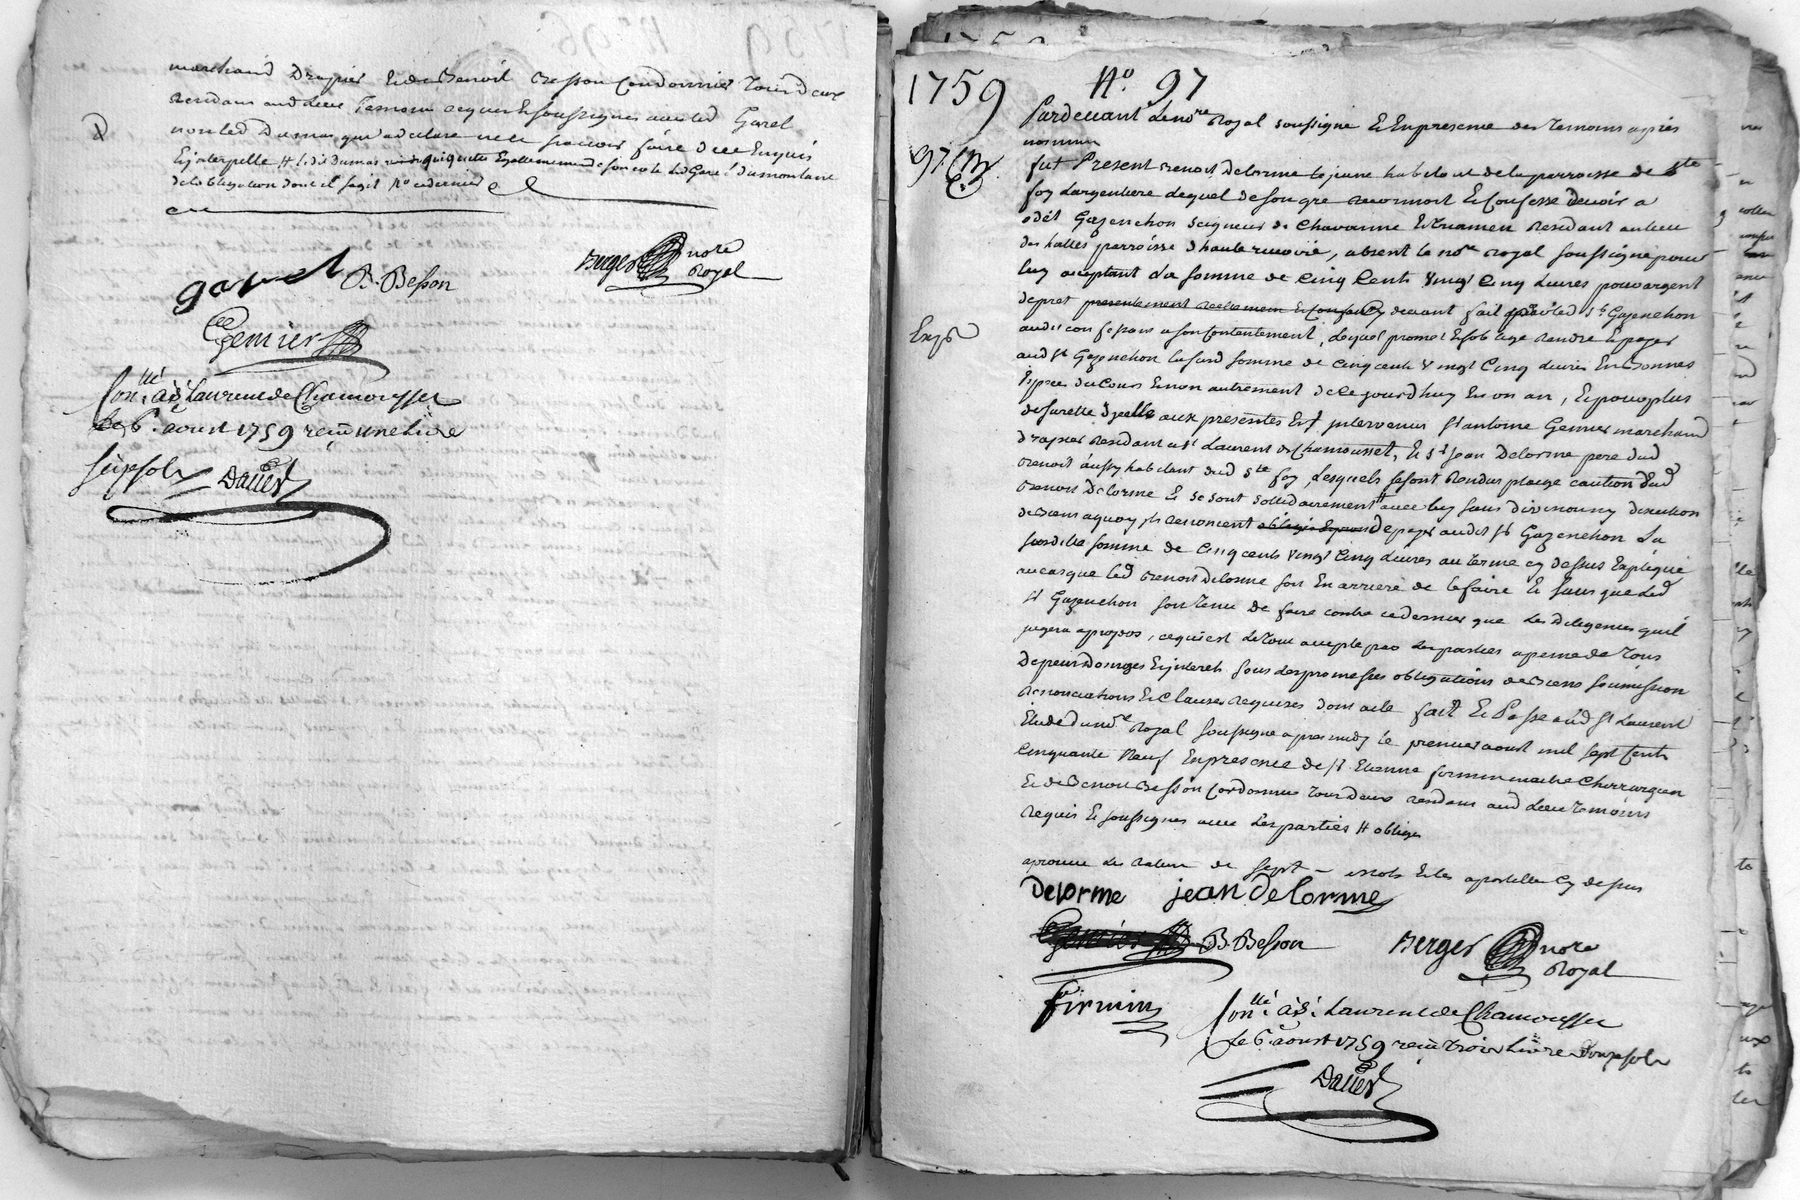 marchand Drapier Et de Benoit Besson Cordonnier tous deux
Residans aud Lieu Temoins requis Et soussignes avec led Garel
non led Dumas qui a declare ne le scavoir faire de ce Enquis
Et jnterpellé # led Dumas
de la obligation dont il s'agit
garel B. Besson Berger nore Royal
Gemier
Con.llé à St Laurent de Chamousset
le 6. aoust 1759 reçu une livre
six sols Dauer
1759 No. 97
97
Pardevant Le nore Royal soussigne Et En presence des temoins apres
nommes
fut Present Benoit Delorme le jeune habitant de la parroisse de Ste
foy Largentiere Lequel de son gre reconnoit Et Confesse devoir a
odet Gazenchon Seigneur de Chavanne Residant au lieu
des halles parroisse d haute rivoire, absent le nore Royal soussigné pour
luy acceptant La somme de Cinq Cents vingt Cinq Livres pour argent
de pret presentement Reellement devant fait led Sr Gazenchon
audit confessant a son Contentement, Lequel promet Et soblige Rendre Et payer
aud Sr Gazenchon lasusd somme de cinq cents vingt Cinq Livres En Bonnes
Espece du Cours Et non autrement de ce jourd'huy En un an, Et pour plus
de surette d jcelle aux presentes Est jntervenu Sr antoine Gemier marchand
drapier Residant a St Laurent de Chamousset, Et Sr Jean Delorme pere dud
Benoit aussy habitant dud Ste foy, Lesquels se sont Rendus pleige caution dud
Benoit Delorme Et se sont solidairement # avec luy sans division ny discution
de Biens a quoy jls Renoncent de payer audit Sr Gazenchon La
susditte somme de Cinq cents vingt Cinq Livres au terme cy dessus Expliqué
au cas que led Benoit Delorme soit En arriere de le faire Et sans que Led
Sr Gazenchon soit tenu de faire contre ce dernier que Les Diligences quil
jugera apropos, ce qui est Le tout accepte par Les parties a peine de tous
Depens Domages Et jnterets sous Les promesses obligations de Biens soumission
Renonciations Et Clauses Requises dont acte fait Et Passe aud St Laurent
Etude du nore Royal soussigne apres midy le premier aoust mil sept Cent
Cinquante Neuf En presence de Sr Etienne firmin maitre Chirurgien
Et de Benoit Besson Cordonnier tous deux Residans aud Lieu temoins
Requis Et soussignes avec Les parties # obliges
aprouve Les Rature de sept mots Et les apostille Cy dessus
Delorme jean Delorme
Gemier B. Besson Berger nore Royal
firmin Con.llé à St Laurent de Chamousset
le 6. aoust 1759 reçu trois livre douze sols
Dauer